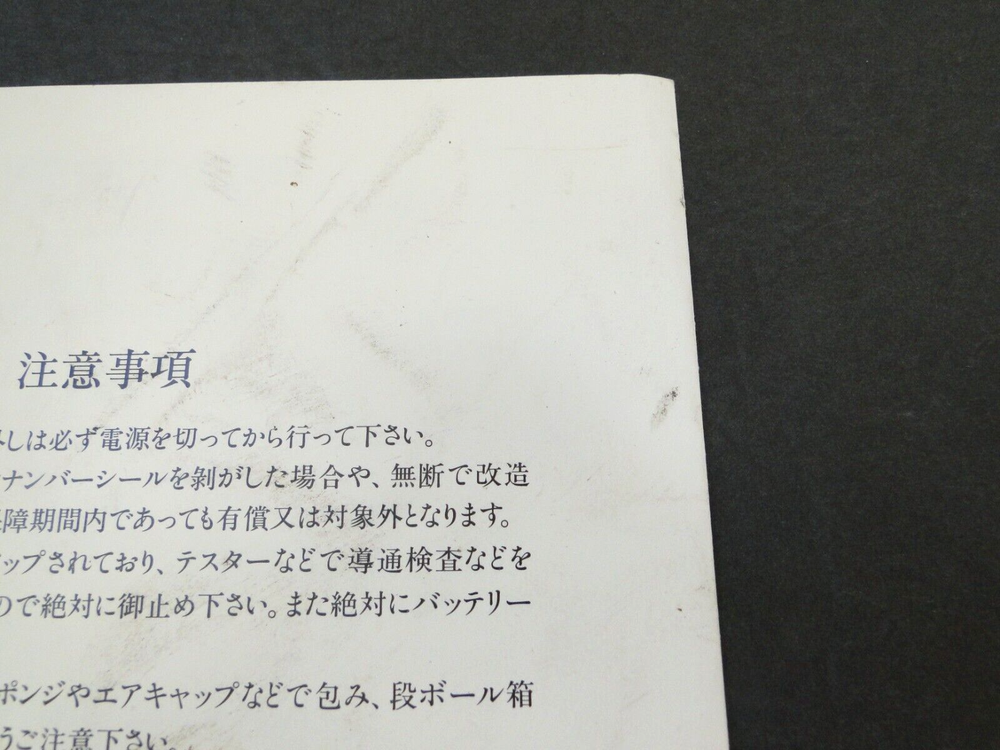 注意事項
しは必ず電源を切ってから行って下さい。
ナンバーシールを剝がした場合や、無断で改造
障期間内であっても有償又は対象外となります。
ップされており、テスターなどで導通検査などを
ので絶対に御止め下さい。また絶対にバッテリー
ポンジやエアキャップなどで包み、段ボール箱
うご注意下さい。